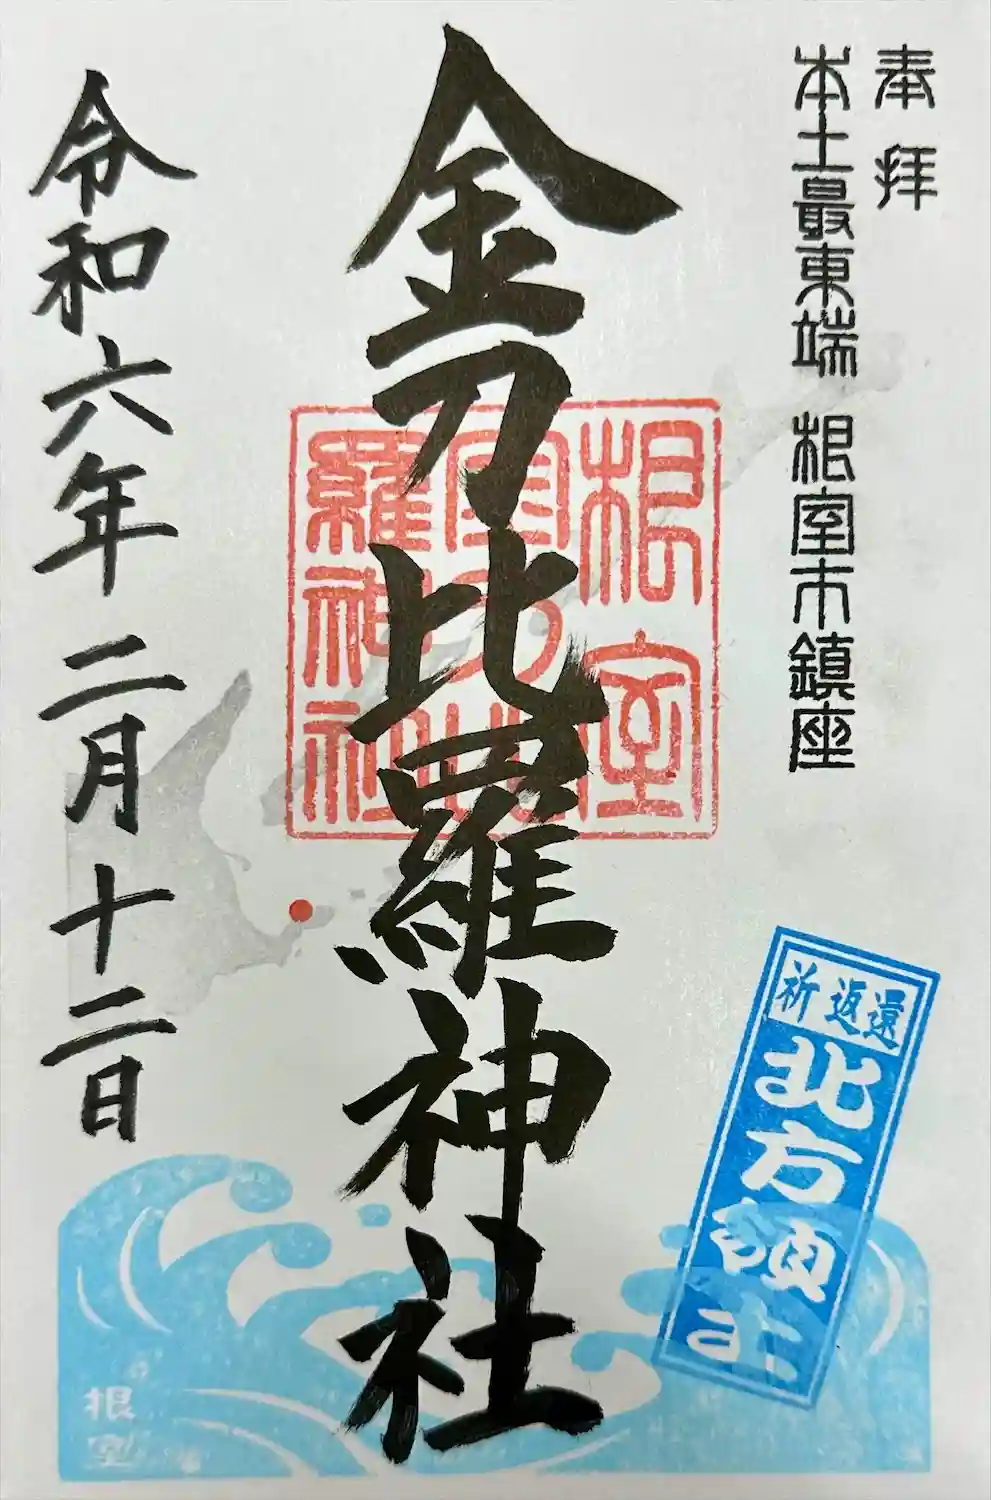 奉拝
本土最東端 根室市鎮座
根室
金刀比
羅神社
金刀比羅神社
令和六年 二月十二日
祈 返還
北方領土
根室